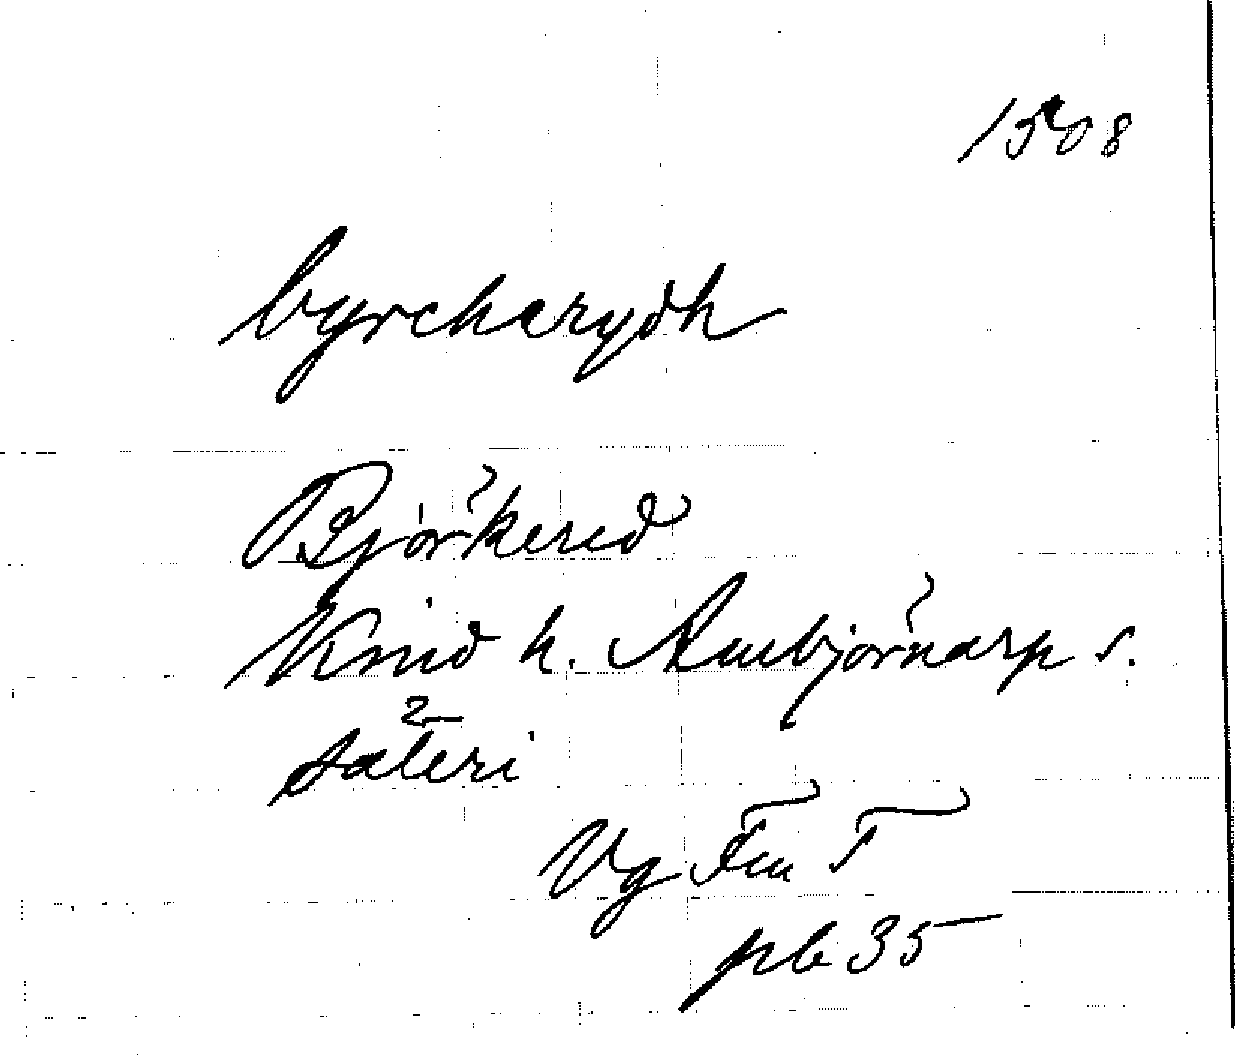 1508
byrcharydh
Björkered
Kind h. Ambjörnarp s.
säteri
Vg Fm T
pb 35